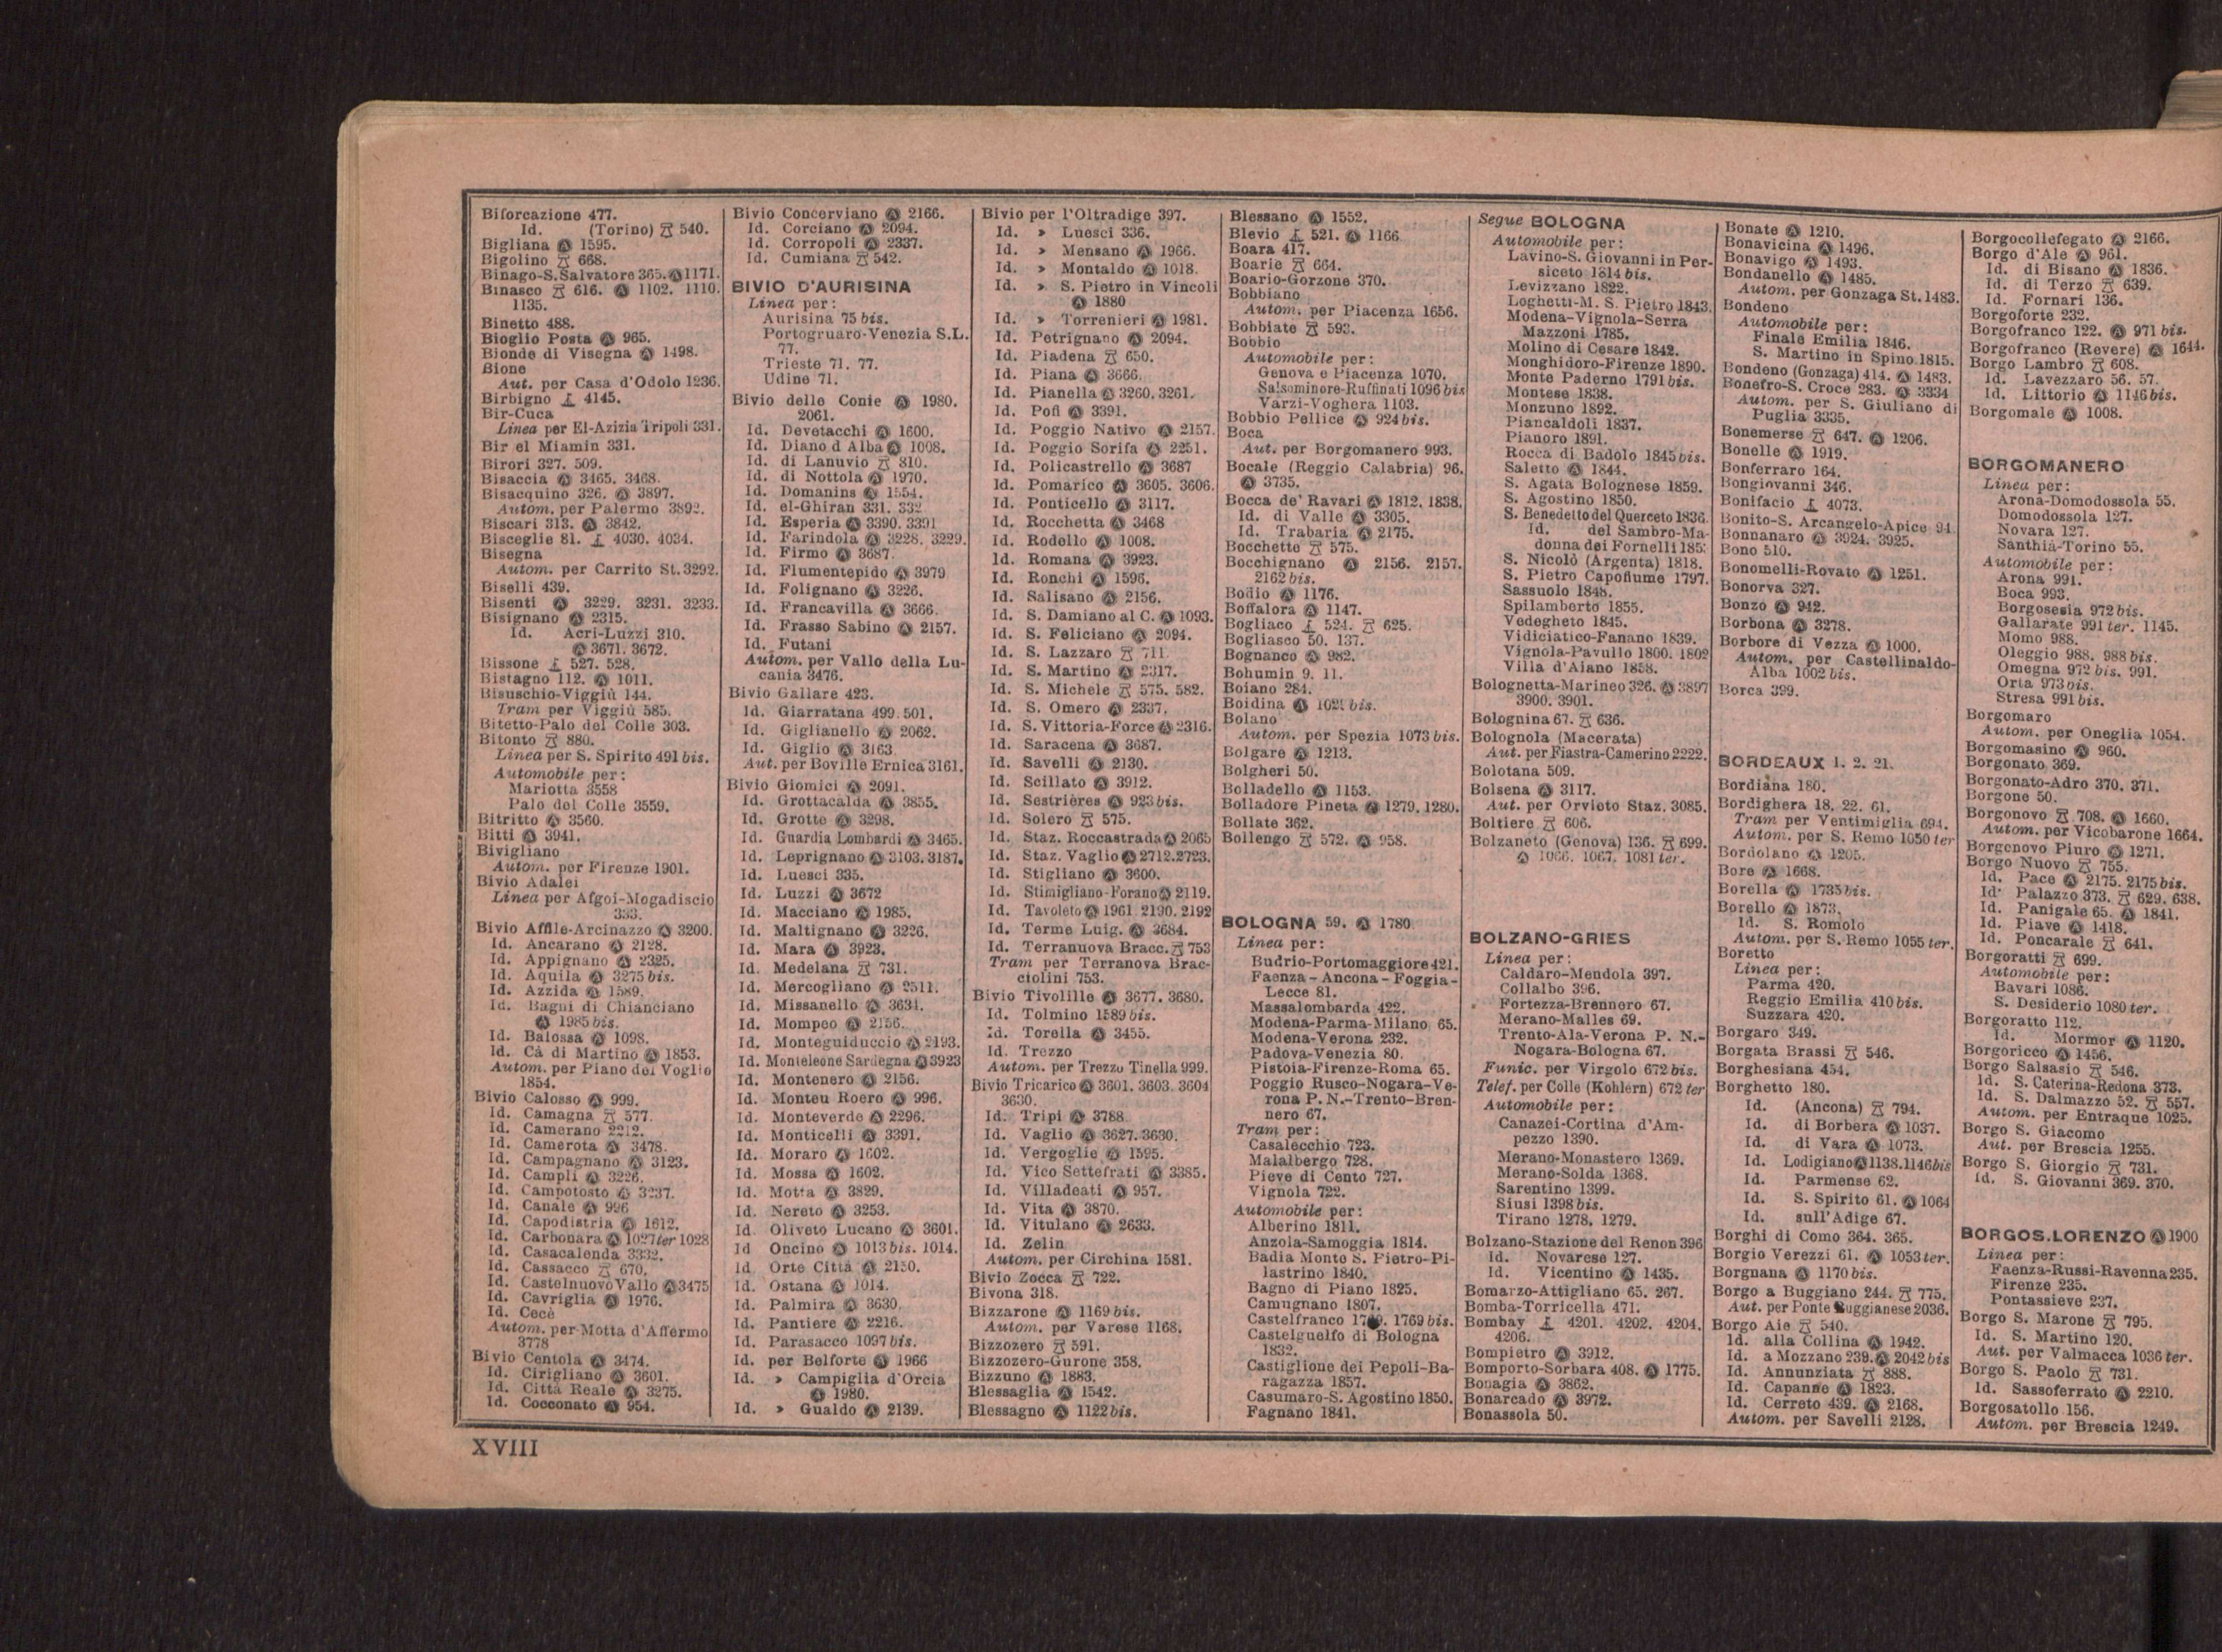 Biforcazione 477.
Id. (Torino) 540.
Bigliana Ⓐ 1595.
Bigolino 668.
Binago-S. Salvatore 365. Ⓐ 1171.
Binasco 616. Ⓐ 1102. 1110.
1135.
Binetto 488.
Bioglio Posta Ⓐ 965.
Bionde di Visegna Ⓐ 1498.
Bione
Aut. per Casa d'Odolo 1236.
Birbigno 4145.
Bir-Cuca
Linea per El-Azizia Tripoli 331.
Bir el Miamin 331.
Birori 327. 509.
Bisaccia Ⓐ 3465. 3468.
Bisacquino 326. Ⓐ 3897.
Autom. per Palermo 3892.
Biscari 313. Ⓐ 3842.
Bisceglie 81. 4030. 4034.
Bisegna
Autom. per Carrito St. 3292.
Biselli 439.
Bisenti Ⓐ 3229. 3231. 3233.
Bisignano Ⓐ 2315.
Id. Acri-Luzzi 310.
Ⓐ 3671. 3672.
Bissone 527. 528.
Bistagno 112. Ⓐ 1011.
Bisuschio-Viggiù 144.
Tram per Viggiù 585.
Bitetto-Palo del Colle 303.
Bitonto 880.
Linea per S. Spirito 491 bis.
Automobile per:
Mariotta 3558
Palo del Colle 3559.
Bitritto Ⓐ 3560.
Bitti Ⓐ 3941.
Bivigliano
Autom. per Firenze 1901.
Bivio Adalei
Linea per Afgoi-Mogadiscio
333.
Bivio Affile-Arcinazzo Ⓐ 3200.
Id. Ancarano Ⓐ 2128.
Id. Appignano Ⓐ 2325.
Id. Aquila Ⓐ 3275 bis.
Id. Azzida Ⓐ 1589.
Id. Bagni di Chianciano
Ⓐ 1985 bis.
Id. Balossa Ⓐ 1098.
Id. Cà di Martino Ⓐ 1853.
Autom. per Piano del Voglio
1854.
Bivio Calosso Ⓐ 999.
Id. Camagna 577.
Id. Camerano 2212.
Id. Camerota Ⓐ 3478.
Id. Campagnano Ⓐ 3123.
Id. Campli Ⓐ 3226.
Id. Campotosto Ⓐ 3237.
Id. Canale Ⓐ 996
Id. Capodistria Ⓐ 1612.
Id. Carbonara Ⓐ 1027 ter 1028
Id. Casacalenda 3332.
Id. Cassacco 670.
Id. Castelnuovo Vallo Ⓐ 3475
Id. Cavriglia Ⓐ 1976.
Id. Cecè
Autom. per Motta d'Affermo
3778
Bivio Centola Ⓐ 3474.
Id. Cirigliano Ⓐ 3601.
Id. Città Reale Ⓐ 3275.
Id. Cocconato Ⓐ 954.
Bivio Concerviano Ⓐ 2166.
Id. Corciano Ⓐ 2094.
Id. Corropoli Ⓐ 2337.
Id. Cumiana 542.
BIVIO D'AURISINA
Linea per:
Aurisina 75 bis.
Portogruaro-Venezia S.L.
77.
Trieste 71. 77.
Udine 71.
Bivio delle Conie Ⓐ 1980.
2061.
Id. Devetacchi Ⓐ 1600.
Id. Diano d Alba Ⓐ 1008.
Id. di Lanuvio 810.
Id. di Nottola Ⓐ 1970.
Id. Domanins Ⓐ 1554.
Id. el-Ghiran 331. 332
Id. Esperia Ⓐ 3390. 3391
Id. Farindola Ⓐ 3228. 3229.
Id. Firmo Ⓐ 3687.
Id. Flumentepido Ⓐ 3979
Id. Folignano Ⓐ 3226.
Id. Francavilla Ⓐ 3666.
Id. Frasso Sabino Ⓐ 2157.
Id. Futani
Autom. per Vallo della Lu-
cania 3476.
Bivio Gallare 423.
Id. Giarratana 499. 501.
Id. Giglianello Ⓐ 2062.
Id. Giglio Ⓐ 3163
Aut. per Boville Ernica 3161.
Bivio Giomici Ⓐ 2091.
Id. Grottacalda Ⓐ 3855.
Id. Grotte Ⓐ 3298.
Id. Guardia Lombardi Ⓐ 3465.
Id. Leprignano Ⓐ 3103. 3187.
Id. Luesci 335.
Id. Luzzi Ⓐ 3672
Id. Macciano Ⓐ 1985.
Id. Maltignano Ⓐ 3226.
Id. Mara Ⓐ 3923.
Id. Medelana 731.
Id. Mercogliano Ⓐ 2511.
Id. Missanello Ⓐ 3631.
Id. Mompeo Ⓐ 2156.
Id. Monteguiduccio Ⓐ 2193.
Id. Monteleone Sardegna Ⓐ 3923
Id. Montenero Ⓐ 2156.
Id. Monteu Roero Ⓐ 996.
Id. Monteverde Ⓐ 2296.
Id. Monticelli Ⓐ 3391.
Id. Moraro Ⓐ 1602.
Id. Mossa Ⓐ 1602.
Id. Motta Ⓐ 3829.
Id. Nereto Ⓐ 3253.
Id. Oliveto Lucano Ⓐ 3601.
Id Oncino Ⓐ 1013 bis. 1014.
Id Orte Città Ⓐ 2150.
Id. Ostana Ⓐ 1014.
Id. Palmira Ⓐ 3630.
Id. Pantiere Ⓐ 2216.
Id. Parasacco 1097 bis.
Id. per Belforte Ⓐ 1966
Id. » Campiglia d'Orcia
Ⓐ 1980.
Id. » Gualdo Ⓐ 2139.
Bivio per l'Oltradige 397.
Id. » Luesci 336.
Id. » Mensano Ⓐ 1966.
Id. » Montaldo Ⓐ 1018.
Id. » S. Pietro in Vincoli
Ⓐ 1880
Id. » Torrenieri Ⓐ 1981.
Id. Petrignano Ⓐ 2094.
Id. Piadena 650.
Id. Piana Ⓐ 3666.
Id. Pianella Ⓐ 3260. 3261.
Id. Pofi Ⓐ 3391.
Id. Poggio Nativo Ⓐ 2157.
Id. Poggio Sorifa Ⓐ 2251.
Id. Policastrello Ⓐ 3687
Id. Pomarico Ⓐ 3605. 3606.
Id. Ponticello Ⓐ 3117.
Id. Rocchetta Ⓐ 3468
Id. Rodello Ⓐ 1008.
Id. Romana Ⓐ 3923.
Id. Ronchi Ⓐ 1596.
Id. Salisano Ⓐ 2156.
Id. S. Damiano al C. Ⓐ 1093.
Id. S. Feliciano Ⓐ 2094.
Id. S. Lazzaro 711.
Id. S. Martino Ⓐ 2317.
Id. S. Michele 575. 582.
Id. S. Omero Ⓐ 2337.
Id. S. Vittoria-Force Ⓐ 2316.
Id. Saracena Ⓐ 3687.
Id. Savelli Ⓐ 2130.
Id. Scillato Ⓐ 3912.
Id. Sestrières Ⓐ 923 bis.
Id. Solero 575.
Id. Staz. Roccastrada Ⓐ 2065
Id. Staz. Vaglio Ⓐ 2712. 2723.
Id. Stigliano Ⓐ 3600.
Id. Stimigliano-Forano Ⓐ 2119.
Id. Tavoleto Ⓐ 1961. 2190. 2192
Id. Terme Luig. Ⓐ 3684.
Id. Terranuova Bracc. 753
Tram per Terranova Brac-
ciolini 753.
Bivio Tivolille Ⓐ 3677. 3680.
Id. Tolmino 1589 bis.
Id. Torella Ⓐ 3455.
Id. Trezzo
Autom. per Trezzo Tinella 999.
Bivio Tricarico Ⓐ 3601. 3603. 3604
3630.
Id. Tripi Ⓐ 3788
Id. Vaglio Ⓐ 3627. 3630.
Id. Vergoglie Ⓐ 1595.
Id. Vico Settefrati Ⓐ 3385.
Id. Villadeati Ⓐ 957.
Id. Vita Ⓐ 3870.
Id. Vitulano Ⓐ 2633.
Id. Zelin
Autom. per Circhina 1581.
Bivio Zocca 722.
Bivona 318.
Bizzarone Ⓐ 1169 bis.
Autom. per Varese 1168.
Bizzozero 591.
Bizzozero-Gurone 358.
Bizzuno Ⓐ 1883.
Blessaglia Ⓐ 1542.
Blessagno Ⓐ 1122 bis.
Blessano Ⓐ 1552.
Blevio 521. Ⓐ 1166
Boara 417.
Boarie 664.
Boario-Gorzone 370.
Bobbiano
Autom. per Piacenza 1656.
Bobbiate 593.
Bobbio
Automobile per:
Genova e Piacenza 1070.
Salsominore-Ruffinati 1096 bis
Varzi-Voghera 1103.
Bobbio Pellice Ⓐ 924 bis.
Boca
Aut. per Borgomanero 993.
Bocale (Reggio Calabria) 96.
Ⓐ 3735.
Bocca de' Ravari Ⓐ 1812. 1838.
Id. di Valle Ⓐ 3305.
Id. Trabaria Ⓐ 2175.
Bocchette 575.
Bocchignano Ⓐ 2156. 2157.
2162 bis.
Bodio Ⓐ 1176.
Boffalora Ⓐ 1147.
Bogliaco 524. 625.
Bogliasco 50. 137.
Bognanco Ⓐ 982.
Bohumin 9. 11.
Boiano 284.
Boidina Ⓐ bis.
Bolano
Autom. per Spezia 1073 bis.
Bolgare Ⓐ 1213.
Bolgheri 50.
Bolladello Ⓐ 1153.
Bolladore Pineta Ⓐ 1279. 1280.
Bollate 362.
Bollengo 572. Ⓐ 958.
BOLOGNA 59. Ⓐ 1780
Linea per:
Budrio-Portomaggiore 421.
Faenza-Ancona-Foggia-
Lecce 81.
Massalombarda 422.
Modena-Parma-Milano 65.
Modena-Verona 232.
Padova-Venezia 80.
Pistoia-Firenze-Roma 65.
Poggio Rusco-Nogara-Ve-
rona P. N.-Trento-Bren-
nero 67.
Tram per:
Casalecchio 723.
Malalbergo 728.
Pieve di Cento 727.
Vignola 722.
Automobile per:
Alberino 1811.
Anzola-Samoggia 1814.
Badia Monte S. Pietro-Pi-
lastrino 1840.
Bagno di Piano 1825.
Camugnano 1807.
Castelfranco 1769 bis.
Castelguelfo di Bologna
1832.
Castiglione dei Pepoli-Ba-
ragazza 1857.
Casumaro-S. Agostino 1850.
Fagnano 1841.
Segue BOLOGNA
Automobile per:
Lavino-S. Giovanni in Per-
siceto 1814 bis.
Levizzano 1822.
Loghetti-M. S. Pietro 1843.
Modena-Vignola-Serra
Mazzoni 1785.
Molino di Cesare 1842.
Monghidoro-Firenze 1890.
Monte Paderno 1791 bis.
Montese 1838.
Monzuno 1892.
Piancaldoli 1837.
Pianoro 1891.
Rocca di Badolo 1845 bis.
Saletto Ⓐ 1844.
S. Agata Bolognese 1859.
S. Agostino 1850.
S. Benedetto del Querceto 1836.
Id. del Sambro-Ma-
donna dei Fornelli
S. Nicolò (Argenta) 1818.
S. Pietro Capofiume 1797.
Sassuolo 1848.
Spilamberto 1855.
Vedegheto 1845.
Vidiciatico-Fanano 1839.
Vignola-Pavullo 1800. 1802
Villa d'Aiano 1858.
Bolognetta-Marineo 326. Ⓐ 3897
3900. 3901.
Bolognina 67. 636.
Bolognola (Macerata)
Aut. per Fiastra-Camerino 2222.
Bolotana 509.
Bolsena Ⓐ 3117.
Aut. per Orvieto Staz. 3085.
Boltiere 606.
Bolzaneto (Genova) 136. 699.
Ⓐ 1066. 1067. 1081 ter.
BOLZANO-GRIES
Linea per:
Caldaro-Mendola 397.
Collalbo 396.
Fortezza-Brennero 67.
Merano-Malles 69.
Trento-Ala-Verona P. N.-
Nogara-Bologna 67.
Funic. per Virgolo 672 bis.
Telef. per Colle (Kohlern) 672 ter
Automobile per:
Canazei-Cortina d'Am-
pezzo 1390.
Merano-Monastero 1369.
Merano-Solda 1368.
Sarentino 1399.
Siusi 1398 bis.
Tirano 1278. 1279.
Bolzano-Stazione del Renon 396
Id. Novarese 127.
Id. Vicentino Ⓐ 1435.
Bomarzo-Attigliano 65. 267.
Bomba-Torricella 471.
Bombay 4201. 4202. 4204.
4206.
Bompietro Ⓐ 3912.
Bomporto-Sorbara 408. Ⓐ 1775.
Bonagia Ⓐ 3862.
Bonarcado Ⓐ 3972.
Bonassola 50.
Bonate Ⓐ 1210.
Bonavicina Ⓐ 1496.
Bonavigo Ⓐ 1493.
Bondanello Ⓐ 1485.
Autom. per Gonzaga St. 1483.
Bondeno
Automobile per:
Finale Emilia 1846.
S. Martino in Spino 1815.
Bondeno (Gonzaga) 414. Ⓐ 1483.
Bonefro-S. Croce 283. Ⓐ 3334
Autom. per S. Giuliano di
Puglia 3335.
Bonemerse 647. Ⓐ 1206.
Bonelle Ⓐ 1919.
Bonferraro 164.
Bongiovanni 346.
Bonifacio 4073.
Bonito-S. Arcangelo-Apice 94
Bonnanaro Ⓐ 3924. 3925.
Bono 510.
Bonomelli-Rovato Ⓐ 1251.
Bonorva 327.
Bonzo Ⓐ 942.
Borbona Ⓐ 3278.
Borbore di Vezza Ⓐ 1000.
Autom. per Castellinaldo-
Alba 1002 bis.
Borca 399.
BORDEAUX 1. 2. 21.
Bordiana 180.
Bordighera 18. 22. 61.
Tram per Ventimiglia 694.
Autom. per S. Remo 1050 ter
Bordolano Ⓐ 1205.
Bore Ⓐ 1668.
Borella Ⓐ 1735 bis.
Borello Ⓐ 1873.
Id. S. Romolo
Autom. per S. Remo 1055 ter.
Boretto
Linea per:
Parma 420.
Reggio Emilia 410 bis.
Suzzara 420.
Borgaro 349.
Borgata Brassi 546.
Borghesiana 454.
Borghetto 180.
Id. (Ancona) 794.
Id. di Borbera Ⓐ 1037.
Id. di Vara Ⓐ 1073.
Id. Lodigiano Ⓐ 1138. 1146 bis
Id. Parmense 62.
Id. S. Spirito 61. Ⓐ 1064
Id. sull'Adige 67.
Borghi di Como 364. 365.
Borgio Verezzi 61. Ⓐ 1053 ter.
Borgnana Ⓐ 1170 bis.
Borgo a Buggiano 244. 775.
Aut. per Ponte Buggianese 2036.
Borgo Aie 540.
Id. alla Collina Ⓐ 1942.
Id. a Mozzano 239. Ⓐ 2042 bis
Id. Annunziata 888.
Id. Capanne Ⓐ 1823.
Id. Cerreto 439. Ⓐ 2168.
Autom. per Savelli 2128.
Borgocollefegato Ⓐ 2166.
Borgo d'Ale Ⓐ 961.
Id. di Bisano Ⓐ 1836.
Id. di Terzo 639.
Id. Fornari 136.
Borgoforte 232.
Borgofranco 122. Ⓐ 971 bis.
Borgofranco (Revere) Ⓐ 1644.
Borgo Lambro 608.
Id. Lavezzaro 56. 57.
Id. Littorio Ⓐ 1146 bis.
Borgomale Ⓐ 1008.
BORGOMANERO
Linea per:
Arona-Domodossola 55.
Domodossola 127.
Novara 127.
Santhià-Torino 55.
Automobile per:
Arona 991.
Boca 993.
Borgosesia 972 bis.
Gallarate 991 ter. 1145.
Momo 988.
Oleggio 988. 988 bis.
Omegna 972 bis. 991.
Orta 973 bis.
Stresa 991 bis.
Borgomaro
Autom. per Oneglia 1054.
Borgomasino Ⓐ 960.
Borgonato 369.
Borgonato-Adro 370. 371.
Borgone 50.
Borgonovo 708. Ⓐ 1660.
Autom. per Vicobarone 1664.
Borgonovo Piuro Ⓐ 1271.
Borgo Nuovo 755.
Id. Pace Ⓐ 2175. 2175 bis.
Id. Palazzo 373. 629. 638.
Id. Panigale 65. Ⓐ 1841.
Id. Piave Ⓐ 1418.
Id. Poncarale 641.
Borgoratti 699.
Automobile per:
Bavari 1086.
S. Desiderio 1080 ter.
Borgoratto 112.
Id. Mormor Ⓐ 1120.
Borgoricco Ⓐ 1456.
Borgo Salsasio 546.
Id. S. Caterina-Redona 373.
Id. S. Dalmazzo 52. 557.
Autom. per Entraque 1025.
Borgo S. Giacomo
Aut. per Brescia 1255.
Borgo S. Giorgio 731.
Id. S. Giovanni 369. 370.
BORGO S. LORENZO Ⓐ 1900
Linea per:
Faenza-Russi-Ravenna 235.
Firenze 235.
Pontassieve 237.
Borgo S. Marone 795.
Id. S. Martino 120.
Aut. per Valmacca 1036 ter.
Borgo S. Paolo 731.
Id. Sassoferrato Ⓐ 2210.
Borgosatollo 156.
Autom. per Brescia 1249.
XVIII